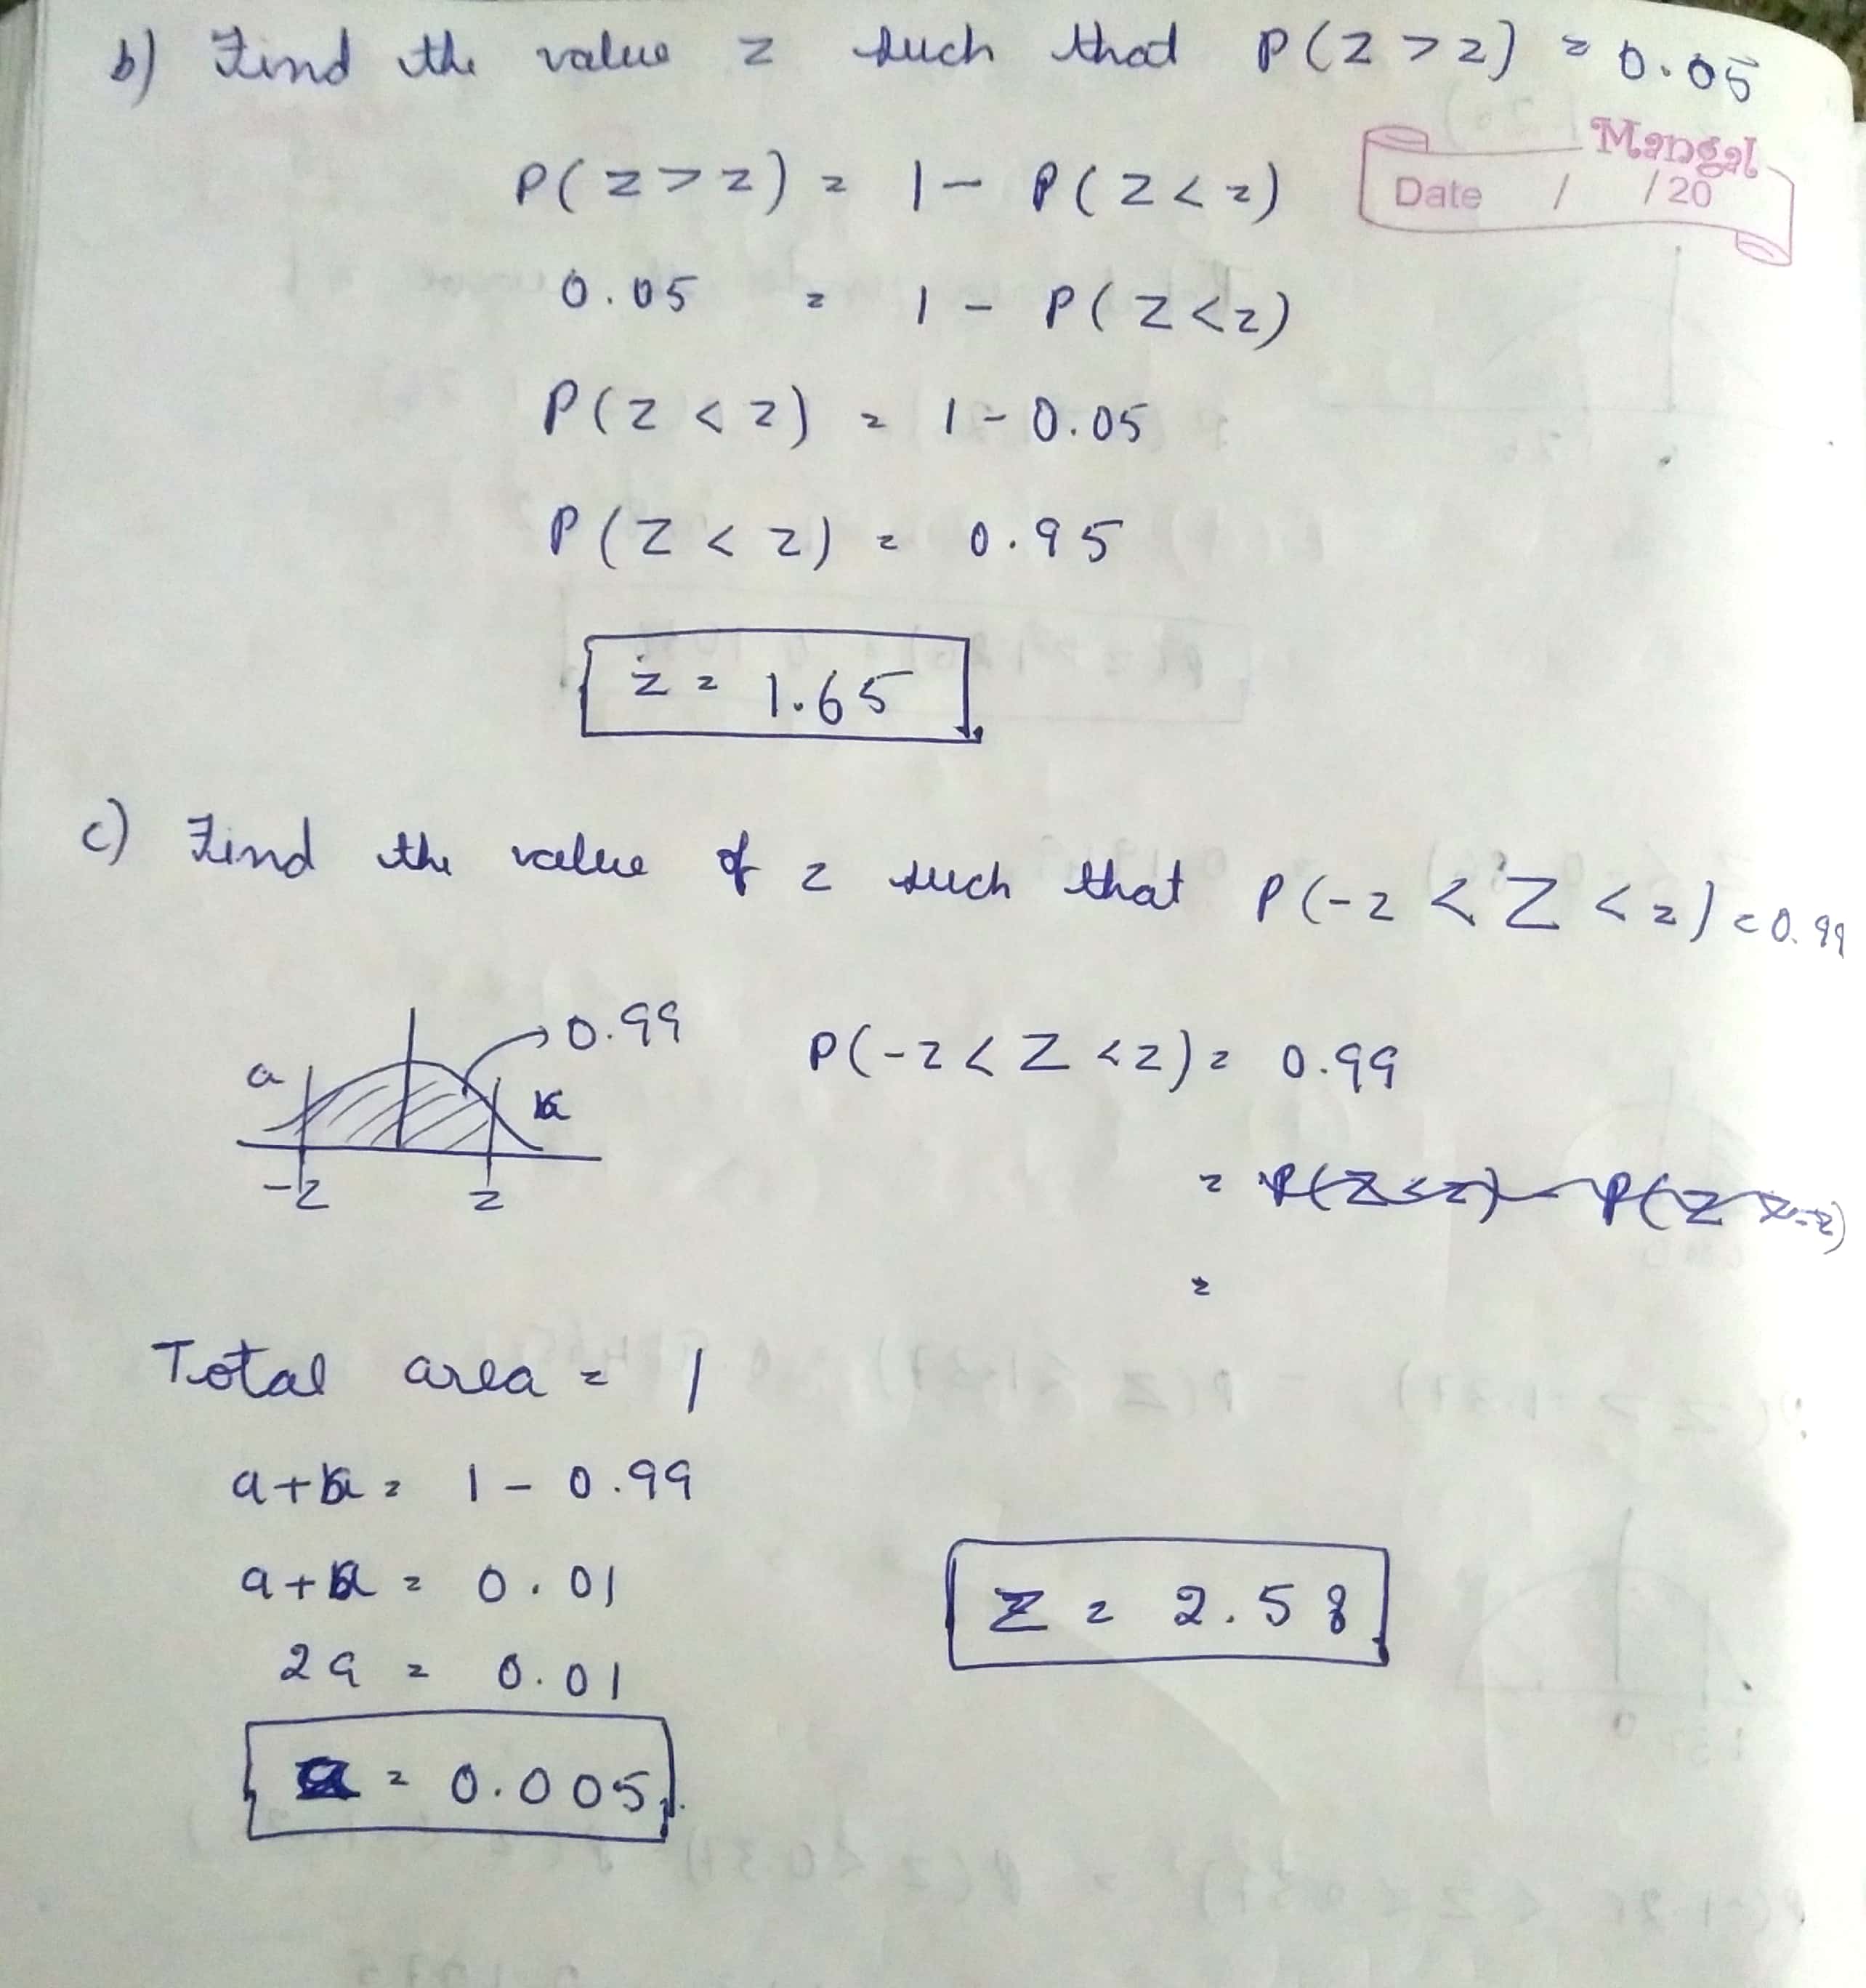 b) Find the value z such that P(Z > z) = 0.05
Mangal
Date / /20
P(Z > z) = 1 - P(Z < z)
0.05 = 1 - P(Z < z)
P(Z < z) = 1 - 0.05
P(Z < z) = 0.95
z = 1.65
c) Find the value of z such that P(-z < Z < z) = 0.99
0.99
a
a
-z z
P(-z < Z < z) = 0.99
= P(Z < z) - P(Z
=
Total area = 1
a + a = 1 - 0.99
a + a = 0.01
2a = 0.01
a = 0.005
Z = 2.58